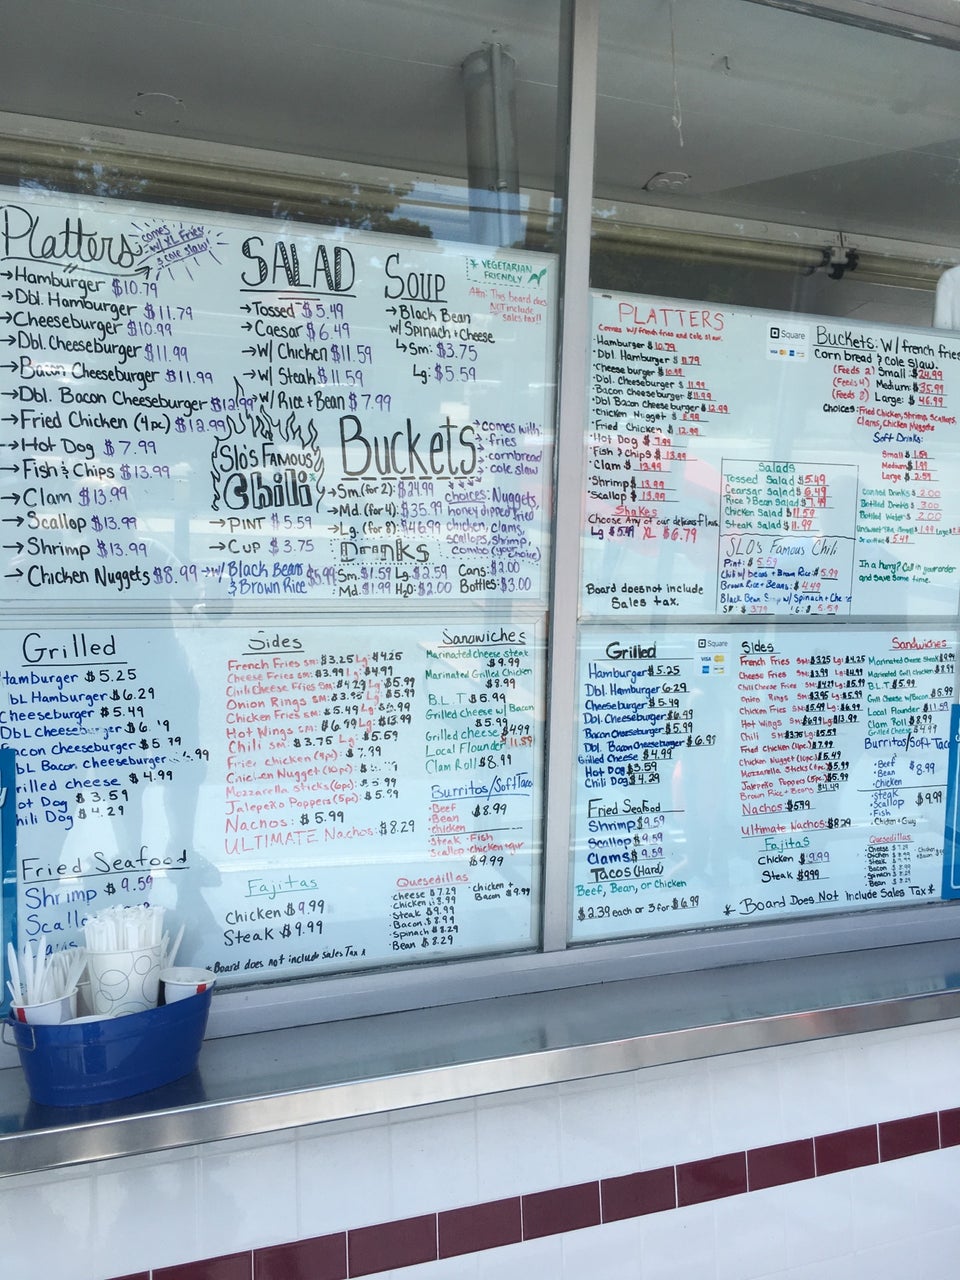 Platters
comes
w/ XL Fries
& cole slaw!
→Hamburger $10.79
→Dbl. Hamburger $11.79
→Cheeseburger $10.99
→Dbl. Cheeseburger $11.99
→Bacon Cheeseburger $11.99
→Dbl. Bacon Cheeseburger $12.99
→Fried Chicken (4pc) $12.99
→Hot Dog $7.99
→Fish & Chips $13.99
→Clam $13.99
→Scallop $13.99
→Shrimp $13.99
→Chicken Nuggets $8.99
SALAD
→Tossed $5.49
→Caesar $6.49
→w/ Chicken $11.59
→w/ Steak $11.59
w/ Rice + Bean $7.99
Soup
→Black Bean
w/ Spinach + Cheese
↳Sm: $3.75
Lg: $5.59
* VEGETARIAN
FRIENDLY
Attn: This board does
NOT include
sales tax!!
Slo's Famous
Chili
→PINT $5.59
→Cup $3.75
→w/ Black Beans
& Brown Rice $5.99
Buckets
comes with:
fries
cornbread
cole slaw
→Sm. (for 2): $24.99
→Md. (for 4): $35.99
→Lg. (for 8): $46.99
choices: Nuggets,
honey dipped fried
chicken, clams,
scallops, shrimp,
combo (your choice)
Drinks
Sm. $1.59 Lg. $2.59
Md. $1.99 H2O: $2.00
Cans: $2.00
Bottles: $3.00
Grilled
Hamburger $5.25
Dbl Hamburger $6.29
Cheeseburger $5.49
Dbl cheeseburger
Bacon cheeseburger
Dbl Bacon cheeseburger
Grilled cheese $4.99
Hot Dog $3.59
Chili Dog $4.29
Fried Seafood
Shrimp $9.59
Sides
French Fries sm: $3.25 Lg: $4.25
Cheese Fries sm: $3.99 Lg: $4.99
Chili Cheese Fries sm: $4.29 Lg: $5.99
Onion Rings sm: $3.95 Lg: $5.99
Chicken Fries sm: $5.49 Lg: $6.99
Hot Wings sm: $6.99 Lg: $13.99
Chili sm: $3.75 Lg: $5.59
Fried chicken (4pc) $7.99
Chicken Nugget (10pc)
Mozzarella Sticks (6pc) $5.99
Jalepeño Poppers (6pc) $5.99
Nachos: $5.99
ULTIMATE Nachos: $8.29
Fajitas
Chicken $9.99
Steak $9.99
*Board does not include Sales Tax*
Sandwiches
Marinated cheese steak
$9.99
Marinated Grilled Chicken
$8.99
B.L.T $5.99
Grilled cheese w/ Bacon
$5.99
Grilled cheese $4.99
Local Flounder $11.59
Clam Roll $8.99
Burritos/Soft Taco
•Beef
•Bean $8.99
•chicken
•Steak •Fish
Scallop
$9.99
Quesedillas
cheese $7.29
Chicken $8.99
•Steak $9.99
•Bacon $8.99
•Spinach $8.29
•Bean $8.29
•chicken +
Bacon $9.99
PLATTERS
Comes w/ french fries and cole slaw.
•Hamburger $10.79
•Dbl. Hamburger $11.79
•Cheese burger $10.99
•Dbl. Cheeseburger $11.99
•Bacon Cheeseburger $11.99
•Dbl Bacon Cheeseburger $12.99
•Chicken Nugget $8.99
•Fried Chicken $12.99
•Hot Dog $7.99
•Fish & Chips $13.99
•Clam $13.99
•Shrimp $13.99
•Scallop $13.99
Shakes
Choose Any of our delicous flavs.
Lg $5.49 XL $6.79
Board doesnot include
Sales tax.
Square
Salads
Tossed Salad $5.49
Ceasar Salad $6.49
Rice & Bean Salad $7.99
Chicken Salad $11.59
Steak Salad $11.99
SLO's Famous Chili
Pint: $5.59
Chili w/ beans + Brown Rice: $5.99
Brown Rice + Beans: $4.49
Black Bean Soup w/ Spinach + Cheese
Buckets: w/ french fries
Corn bread & Cole slaw.
(Feeds 2) Small: $24.99
(Feeds 4) Medium: $35.99
(Feeds 8) Large: $46.99
Choices: Fried Chicken, Shrimp, Scallops,
Clams, Chicken Nuggets
Soft Drinks:
Small $1.59
Medium $1.99
Large $2.59
Canned Drinks $2.00
Bottled Drinks $3.00
Bottled Water $2.00
In a hurry? Call in your order
and save some time.
Grilled
Hamburger $5.25
Dbl Hamburger 6.29
Cheeseburger $5.49
Dbl. Cheeseburger $6.99
Bacon Cheeseburger $5.99
Dbl. Bacon Cheeseburger $6.99
Grilled Cheese $4.99
Hot Dog $3.59
Chili Dog $4.29
Fried Seafood
Shrimp $9.59
Scallop $9.59
Clams $9.59
Tacos (Hard)
Beef, Bean, or Chicken
$2.39 each or 3 for $6.99
Square
VISA
Sides
French Fries sm: $3.25 Lg: $4.25
Cheese Fries sm: $3.99 Lg: $4.99
Chili Cheese Fries sm: $4.29 Lg: $5.99
Onion Rings sm: $3.95 Lg: $5.99
Chicken Fries sm: $5.49 Lg: $6.99
Hot Wings sm: $6.99 Lg: $13.99
Chili sm: $3.75 Lg: $5.59
Fried Chicken (4pc) $7.99
Chicken Nugget (10pc) $5.49
Mozzarella Sticks (6pc) $5.99
Jalepeño Poppers (6pc) $5.99
Brown Rice + Beans $4.49
Nachos $5.99
Ultimate Nachos: $8.29
Fajitas
Chicken $9.99
Steak $9.99
Sandwiches
Marinated Cheese Steak $9.99
Marinated Grill Chicken $8.99
B.L.T. $5.99
Grill Cheese w/ Bacon $5.99
Local Flounder $11.59
Clam Roll $8.99
Grilled Cheese $4.99
Burritos/Soft Taco
•Beef
•Bean $8.99
•Chicken
•Steak
•Scallop $9.99
•Fish
Quesedillas
•Cheese $7.29
•Chicken $8.99
•Steak $9.99
•Bacon $8.99
•Spinach $8.29
•Bean $8.29
* Board Does Not Include Sales Tax *